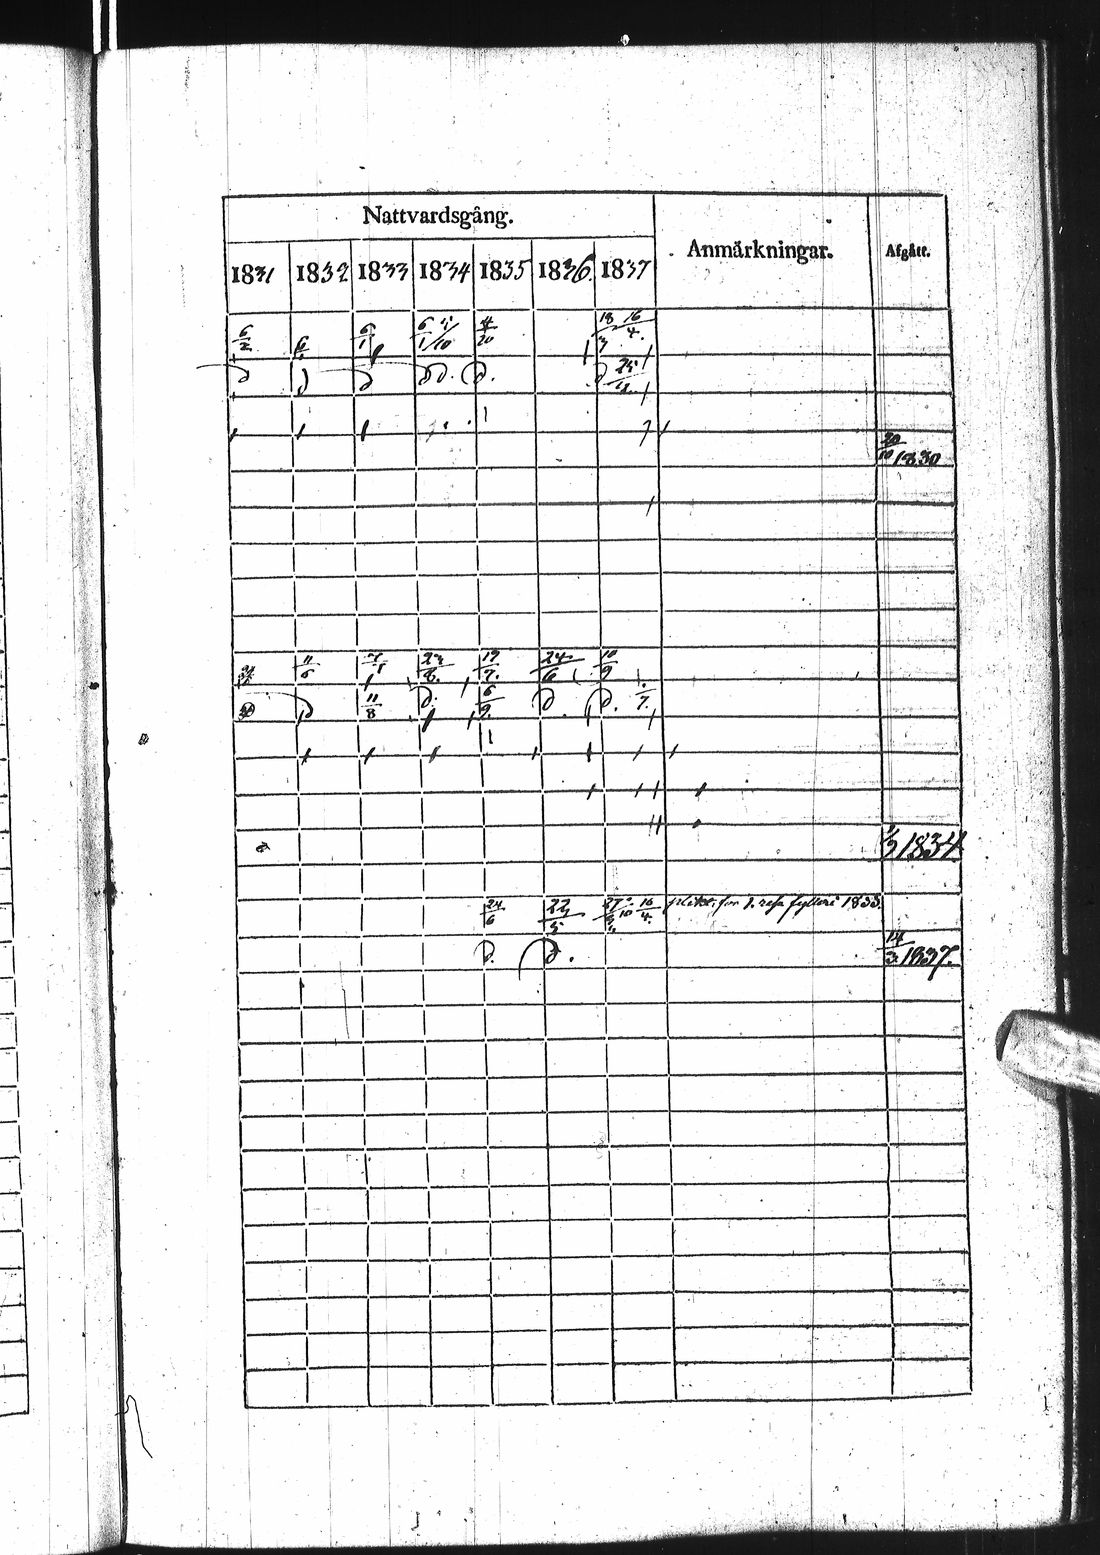 Nattvardsgång.
Anmärkningar. Afgått.
1831 1832 1833 1834 1835 1836. 1837
6/2 6/1 6/1 4/20 18/3 16/4.
d d d d d. d. d 25/4.
20/10 1830
11/6 23/8. 19/7. 24/6 10/9
d 11/8 d. 6/9. d. d. 1/7.
1/9 1834
24/6 22/5 16/4. plikt. för 1. resa fylleri 1835.
d. d. 14/3 1837.